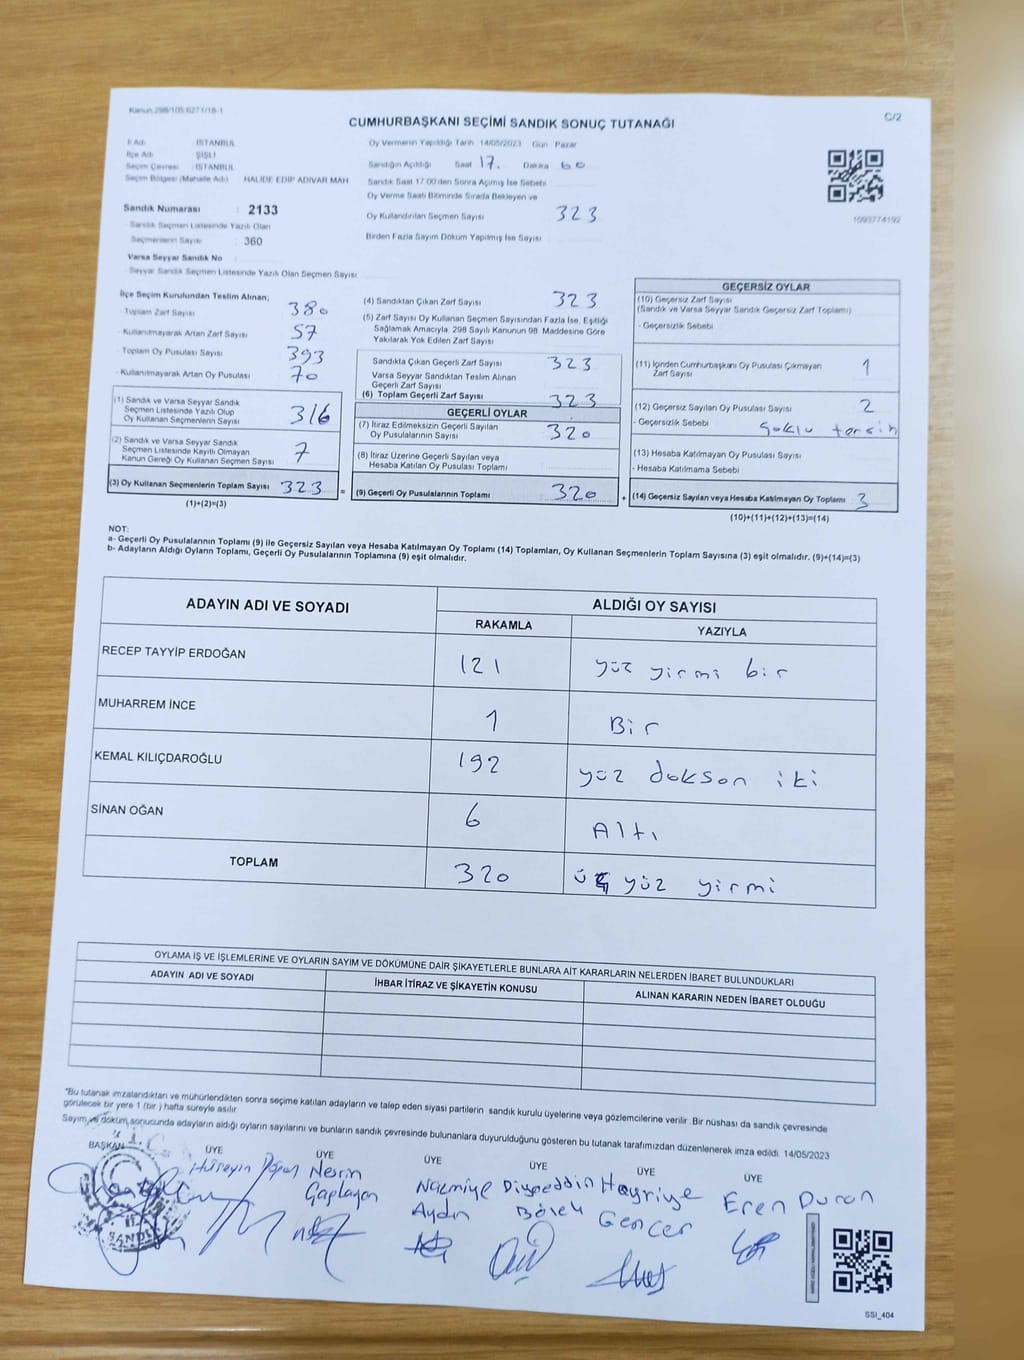 Kanun:298/105;6271/18-1
C/2
CUMHURBAŞKANI SEÇİMİ SANDIK SONUÇ TUTANAĞI
İl Adı : İSTANBUL
İlçe Adı : ŞİŞLİ
Seçim Çevresi : İSTANBUL
Seçim Bölgesi (Mahalle Adı) : HALİDE EDİP ADIVAR MAH
Sandık Numarası : 2133
- Sandık Seçmen Listesinde Yazılı Olan
Seçmenlerin Sayısı : 360
Varsa Seyyar Sandık No :
- Seyyar Sandık Seçmen Listesinde Yazılı Olan Seçmen Sayısı :
Oy Vermenin Yapıldığı Tarih 14/05/2023 Gün Pazar
Sandığın Açıldığı Saat 17. Dakika 60
Sandık Saat 17:00'den Sonra Açılmış İse Sebebi
Oy Verme Saati Bitiminde Sırada Bekleyen ve
Oy Kullandırılan Seçmen Sayısı 323
Birden Fazla Sayım Döküm Yapılmış İse Sayısı
1093774192
İlçe Seçim Kurulundan Teslim Alınan;
- Toplam Zarf Sayısı 380
- Kullanılmayarak Artan Zarf Sayısı 57
- Toplam Oy Pusulası Sayısı 393
- Kullanılmayarak Artan Oy Pusulası 70
(1) Sandık ve Varsa Seyyar Sandık
Seçmen Listesinde Yazılı Olup
Oy Kullanan Seçmenlerin Sayısı 316
(2) Sandık ve Varsa Seyyar Sandık
Seçmen Listesinde Kayıtlı Olmayan
Kanun Gereği Oy Kullanan Seçmen Sayısı 7
(3) Oy Kullanan Seçmenlerin Toplam Sayısı 323 =
(1)+(2)=(3)
(4) Sandıktan Çıkan Zarf Sayısı 323
(5) Zarf Sayısı Oy Kullanan Seçmen Sayısından Fazla İse, Eşitliği
Sağlamak Amacıyla, 298 Sayılı Kanunun 98. Maddesine Göre
Yakılarak Yok Edilen Zarf Sayısı
Sandıkta Çıkan Geçerli Zarf Sayısı 323
Varsa Seyyar Sandıktan Teslim Alınan
Geçerli Zarf Sayısı
(6) Toplam Geçerli Zarf Sayısı 323
GEÇERLİ OYLAR
(7) İtiraz Edilmeksizin Geçerli Sayılan
Oy Pusulalarının Sayısı 320
(8) İtiraz Üzerine Geçerli Sayılan veya
Hesaba Katılan Oy Pusulası Toplamı
(9) Geçerli Oy Pusulalarının Toplamı 320 +
GEÇERSİZ OYLAR
(10) Geçersiz Zarf Sayısı
(Sandık ve Varsa Seyyar Sandık Geçersiz Zarf Toplamı)
- Geçersizlik Sebebi
(11) İçinden Cumhurbaşkanı Oy Pusulası Çıkmayan
Zarf Sayısı 1
(12) Geçersiz Sayılan Oy Pusulası Sayısı 2
- Geçersizlik Sebebi çoklu tercih
(13) Hesaba Katılmayan Oy Pusulası Sayısı
- Hesaba Katılmama Sebebi
(14) Geçersiz Sayılan veya Hesaba Katılmayan Oy Toplamı 3
(10)+(11)+(12)+(13)=(14)
NOT:
a- Geçerli Oy Pusulalarının Toplamı (9) ile Geçersiz Sayılan veya Hesaba Katılmayan Oy Toplamı (14) Toplamları, Oy Kullanan Seçmenlerin Toplam Sayısına (3) eşit olmalıdır. (9)+(14)=(3)
b- Adayların Aldığı Oyların Toplamı, Geçerli Oy Pusulalarının Toplamına (9) eşit olmalıdır.
ADAYIN ADI VE SOYADI ALDIĞI OY SAYISI
RAKAMLA YAZIYLA
RECEP TAYYİP ERDOĞAN 121 yüz yirmi bir
MUHARREM İNCE 1 Bir
KEMAL KILIÇDAROĞLU 192 yüz doksan iki
SİNAN OĞAN 6 Altı
TOPLAM 320 üç yüz yirmi
OYLAMA İŞ VE İŞLEMLERİNE VE OYLARIN SAYIM VE DÖKÜMÜNE DAİR ŞİKAYETLERLE BUNLARA AİT KARARLARIN NELERDEN İBARET BULUNDUKLARI
ADAYIN ADI VE SOYADI İHBAR İTİRAZ VE ŞİKAYETİN KONUSU ALINAN KARARIN NEDEN İBARET OLDUĞU
*Bu tutanak imzalandıktan ve mühürlendikten sonra seçime katılan adayların ve talep eden siyasi partilerin sandık kurulu üyelerine veya gözlemcilerine verilir. Bir nüshası da sandık çevresinde
görülecek bir yere 1 (bir ) hafta süreyle asılır.
Sayım ve döküm sonucunda adayların aldığı oyların sayılarını ve bunların sandık çevresinde bulunanlara duyurulduğunu gösteren bu tutanak tarafımızdan düzenlenerek imza edildi. 14/05/2023
BAŞKAN ÜYE ÜYE ÜYE ÜYE ÜYE ÜYE
Hüseyin Nesrin Nazmiye Diyaeddin Hayriye Eren Duran
Kaplayan Aydın Bölek Gencer
SANDIK
SSI_404